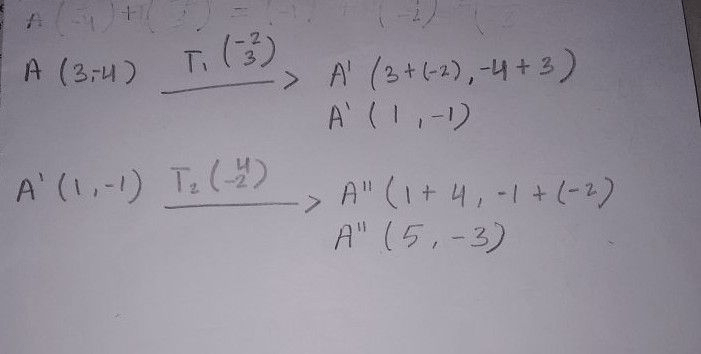 A (3,-4) T₁ (-2 3) A' (3+(-2), -4+3)
A' (1,-1)
A' (1,-1) T₂ (4 -2) A" (1+4, -1+(-2)
A" (5,-3)